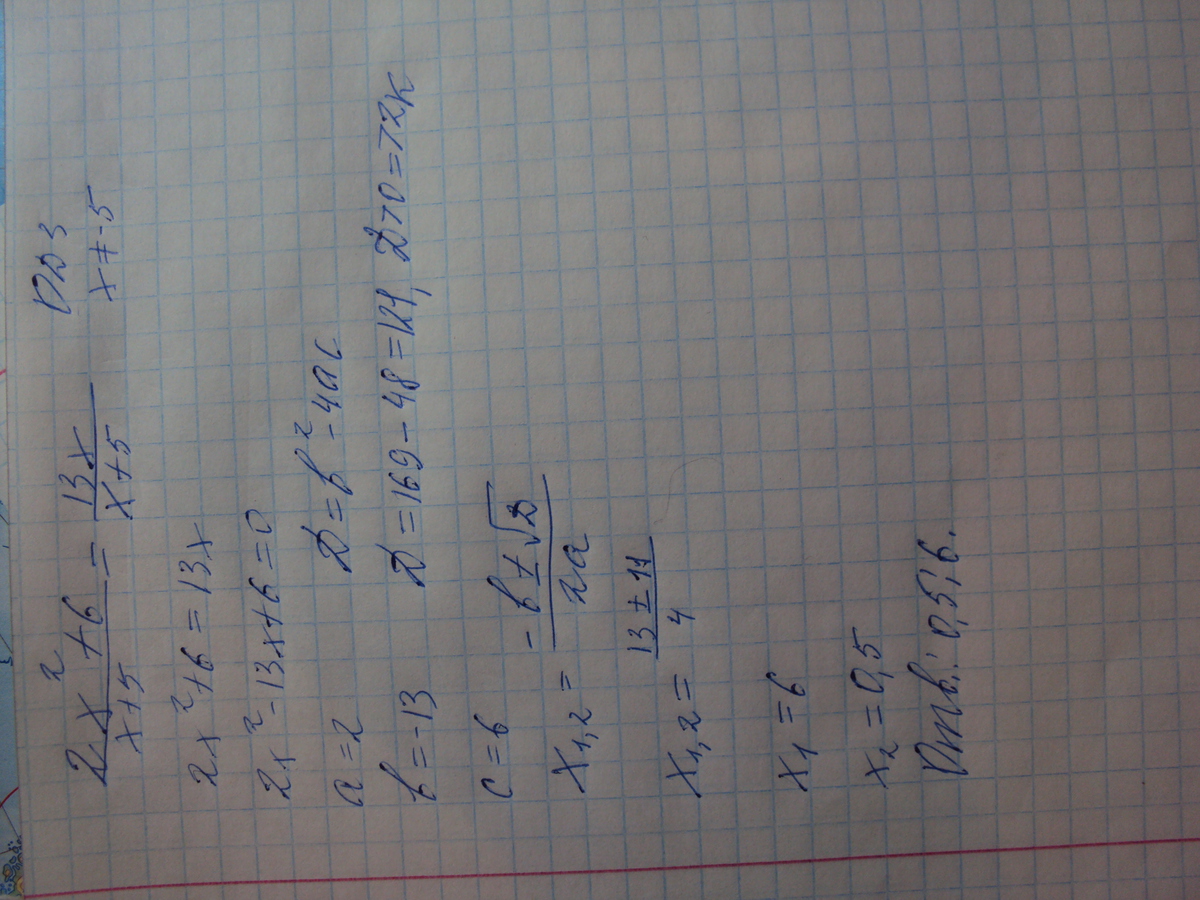 (2x²+6)/(x+5) = 13x/(x+5) ОДЗ x≠-5
2x²+6=13x
2x²-13x+6=0
a=2 D=b²-4ac
b=-13 D=169-48=121, D>0=>2к
c=6
x1,2 = (-b±√D)/2a
x1,2 = (13±11)/4
x1=6
x2=0,5
Отв.: 0,5; 6.